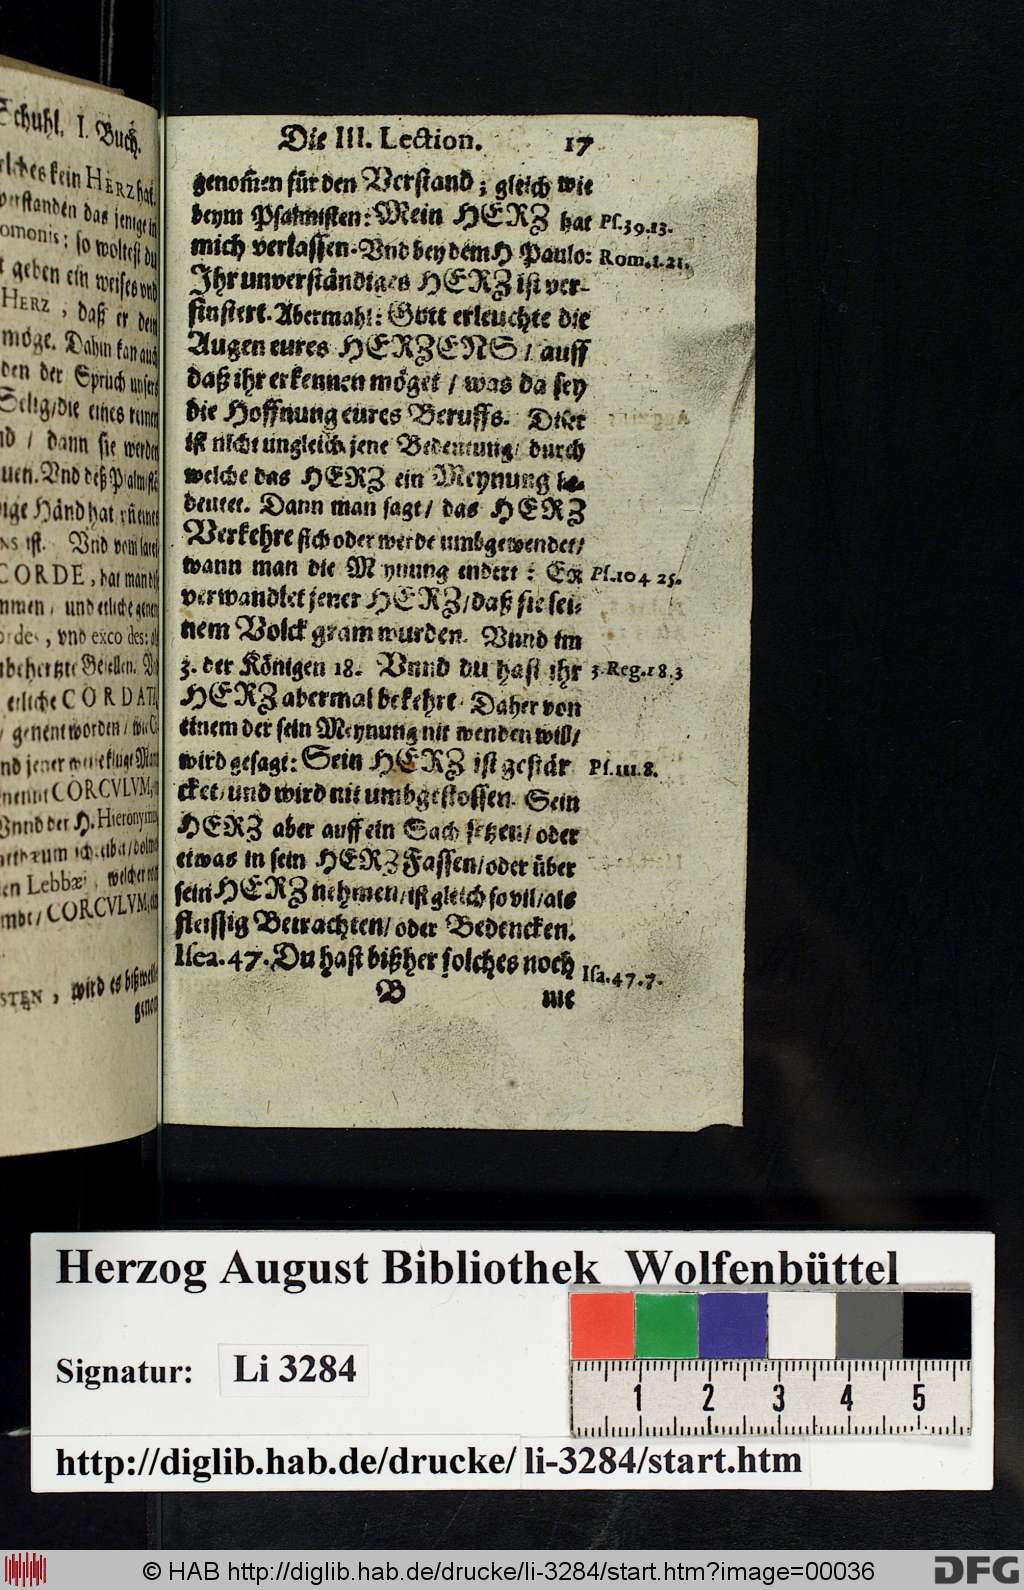 Schuhl. I. Buch.
kein HERZ hat.
verstanden das jenige in
omonis: so woltest du
geben ein weises vnd
HERZ, daß er dein
möge. Dahin kan auch
den der Spruch unsers
Selig/die eines reinen
/ dann sie werden
Vnd deß Psalmistē
Händ hat vñ eines
ist. Vnd vom latei
CORDE, hat man
und etliche genen
, vnd exco des: als
Gesellen. Vñ
etliche CORDATI,
/ genent worden / wie
CORCVLVM,
Vnnd der H. Hieronymus
Lebbæi, welcher von
CORCVLVM,
, wird es bißweilē
genom
Die III. Lection. 17
genom̄en für den Verstand; gleich wie
beym Psalmisten: Mein HERZ hat Ps.39.13.
mich verlassen. Vnd bey dem H Paulo: Rom.1.21.
Ihr unverständiges HERZ ist ver-
finstert. Abermahl: Gott erleuchte die
Augen eures HERZENS / auff
daß ihr erkennen möget / was da sey
die Hoffnung eures Beruffs. Diser
ist nicht ungleich jene Bedeutung/ durch
welche das HERZ ein Meynung be-
deutet. Dann man sagt / das HERZ
Verkehre sich oder werde umbgewendet/
wann man die Meynung endert: ER Ps.104 25.
verwandlet jener HERZ/daß sie sei-
nem Volck gram wurden. Vnnd im
3. der Königen 18. Vnnd du hast ihr 3.Reg.18.3
HERZ abermal bekehrt. Daher von
einem der sein Meynung nit wenden will/
wird gesagt: Sein HERZ ist gestär Ps.111.8.
cket/und wird nit umbgestossen. Sein
HERZ aber auff ein Sach setzen/ oder
etwas in sein HERZ Fassen/oder über
sein HERZ nehmen/ist gleich so vil/als
fleissig Betrachten/ oder Bedencken.
Isea.47. Du hast bißher solches noch Isa.47.7.
B nie
Herzog August Bibliothek Wolfenbüttel
Signatur: Li 3284
1 2 3 4 5
http://diglib.hab.de/drucke/ li-3284/start.htm
© HAB http://diglib.hab.de/drucke/li-3284/start.htm?image=00036 DFG